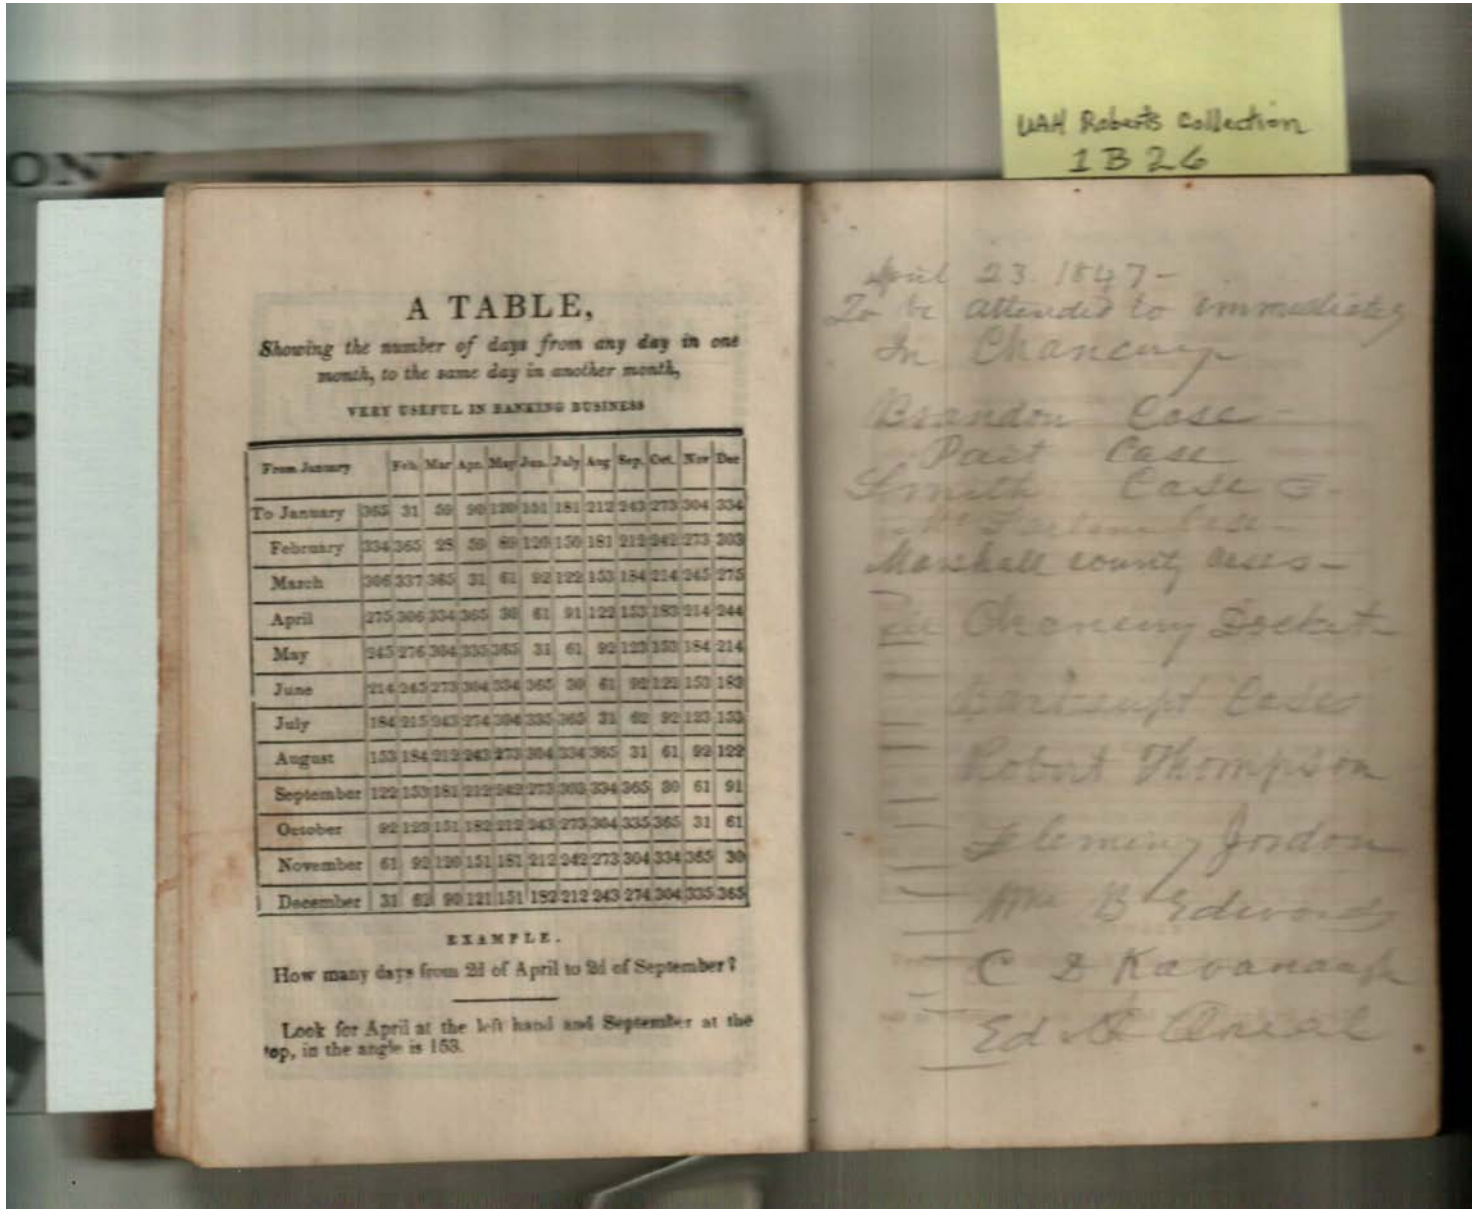 ON
UAH Roberts Collection
1B26
A TABLE,
Showing the number of days from any day in one
month, to the same day in another month,
VERY USEFUL IN BANKING BUSINESS
From January Feb. Mar Apr. May Jun. July Aug Sep. Oct. Nov Dec
To January 365 31 59 90 120 151 181 212 243 273 304 334
February 334 365 28 59 89 120 150 181 212 242 273 303
March 306 337 365 31 61 92 122 153 184 214 245 275
April 275 306 334 365 30 61 91 122 153 183 214 244
May 245 276 304 335 365 31 61 92 123 153 184 214
June 214 245 273 304 334 365 30 61 92 122 153 183
July 184 215 243 274 304 335 365 31 62 92 123 153
August 153 184 212 243 273 304 334 365 31 61 92 122
September 122 153 181 212 242 273 303 334 365 30 61 91
October 92 123 151 182 212 243 273 304 335 365 31 61
November 61 92 120 151 181 212 242 273 304 334 365 30
December 31 62 90 121 151 182 212 243 274 304 335 365
EXAMPLE.
How many days from 2d of April to 2d of September?
Look for April at the left hand and September at the
top, in the angle is 153.
April 23. 1847-
To be attended to immediately
In Chancery
Brandon Case -
Case
Smith Case
Case -
Marshall county Cases -
Chancery Docket
Bankrupt Cases
Robert Thompson
Fleming Jordon
Wm B Edwards
C D Kavanaugh
Ed A Oneal